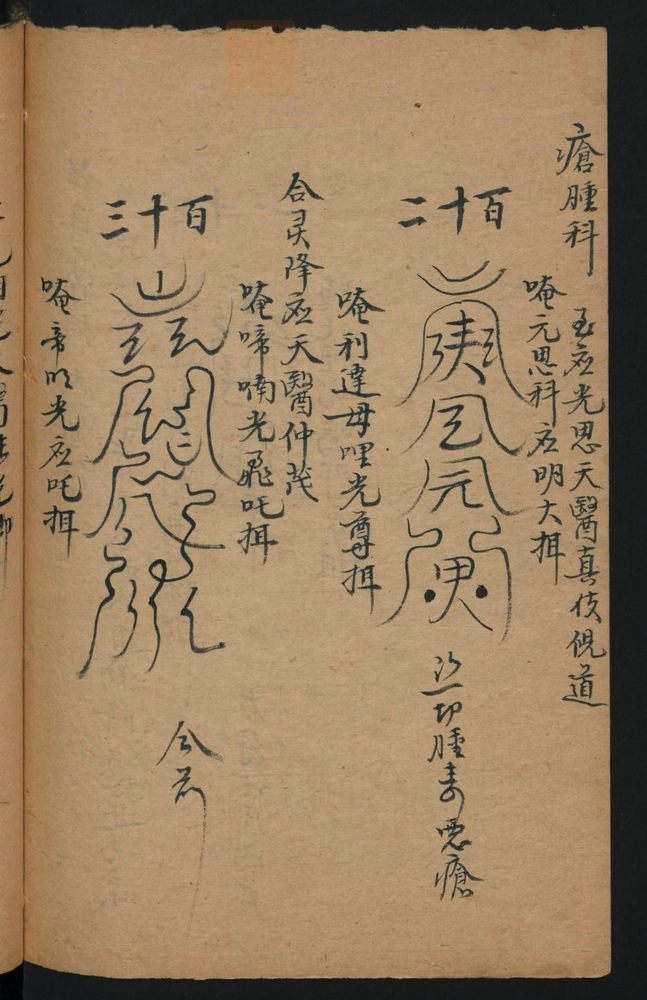 瘡腫科
玉应光思天醫真伎倪道
唵元思科应明大揖
百十二
治一切腫毒惡瘡
唵利達母哩光尊揖
合灵降应天醫仲茂
唵啼喃光飛吒揖
百十三
仝前
唵帝明光应吒揖